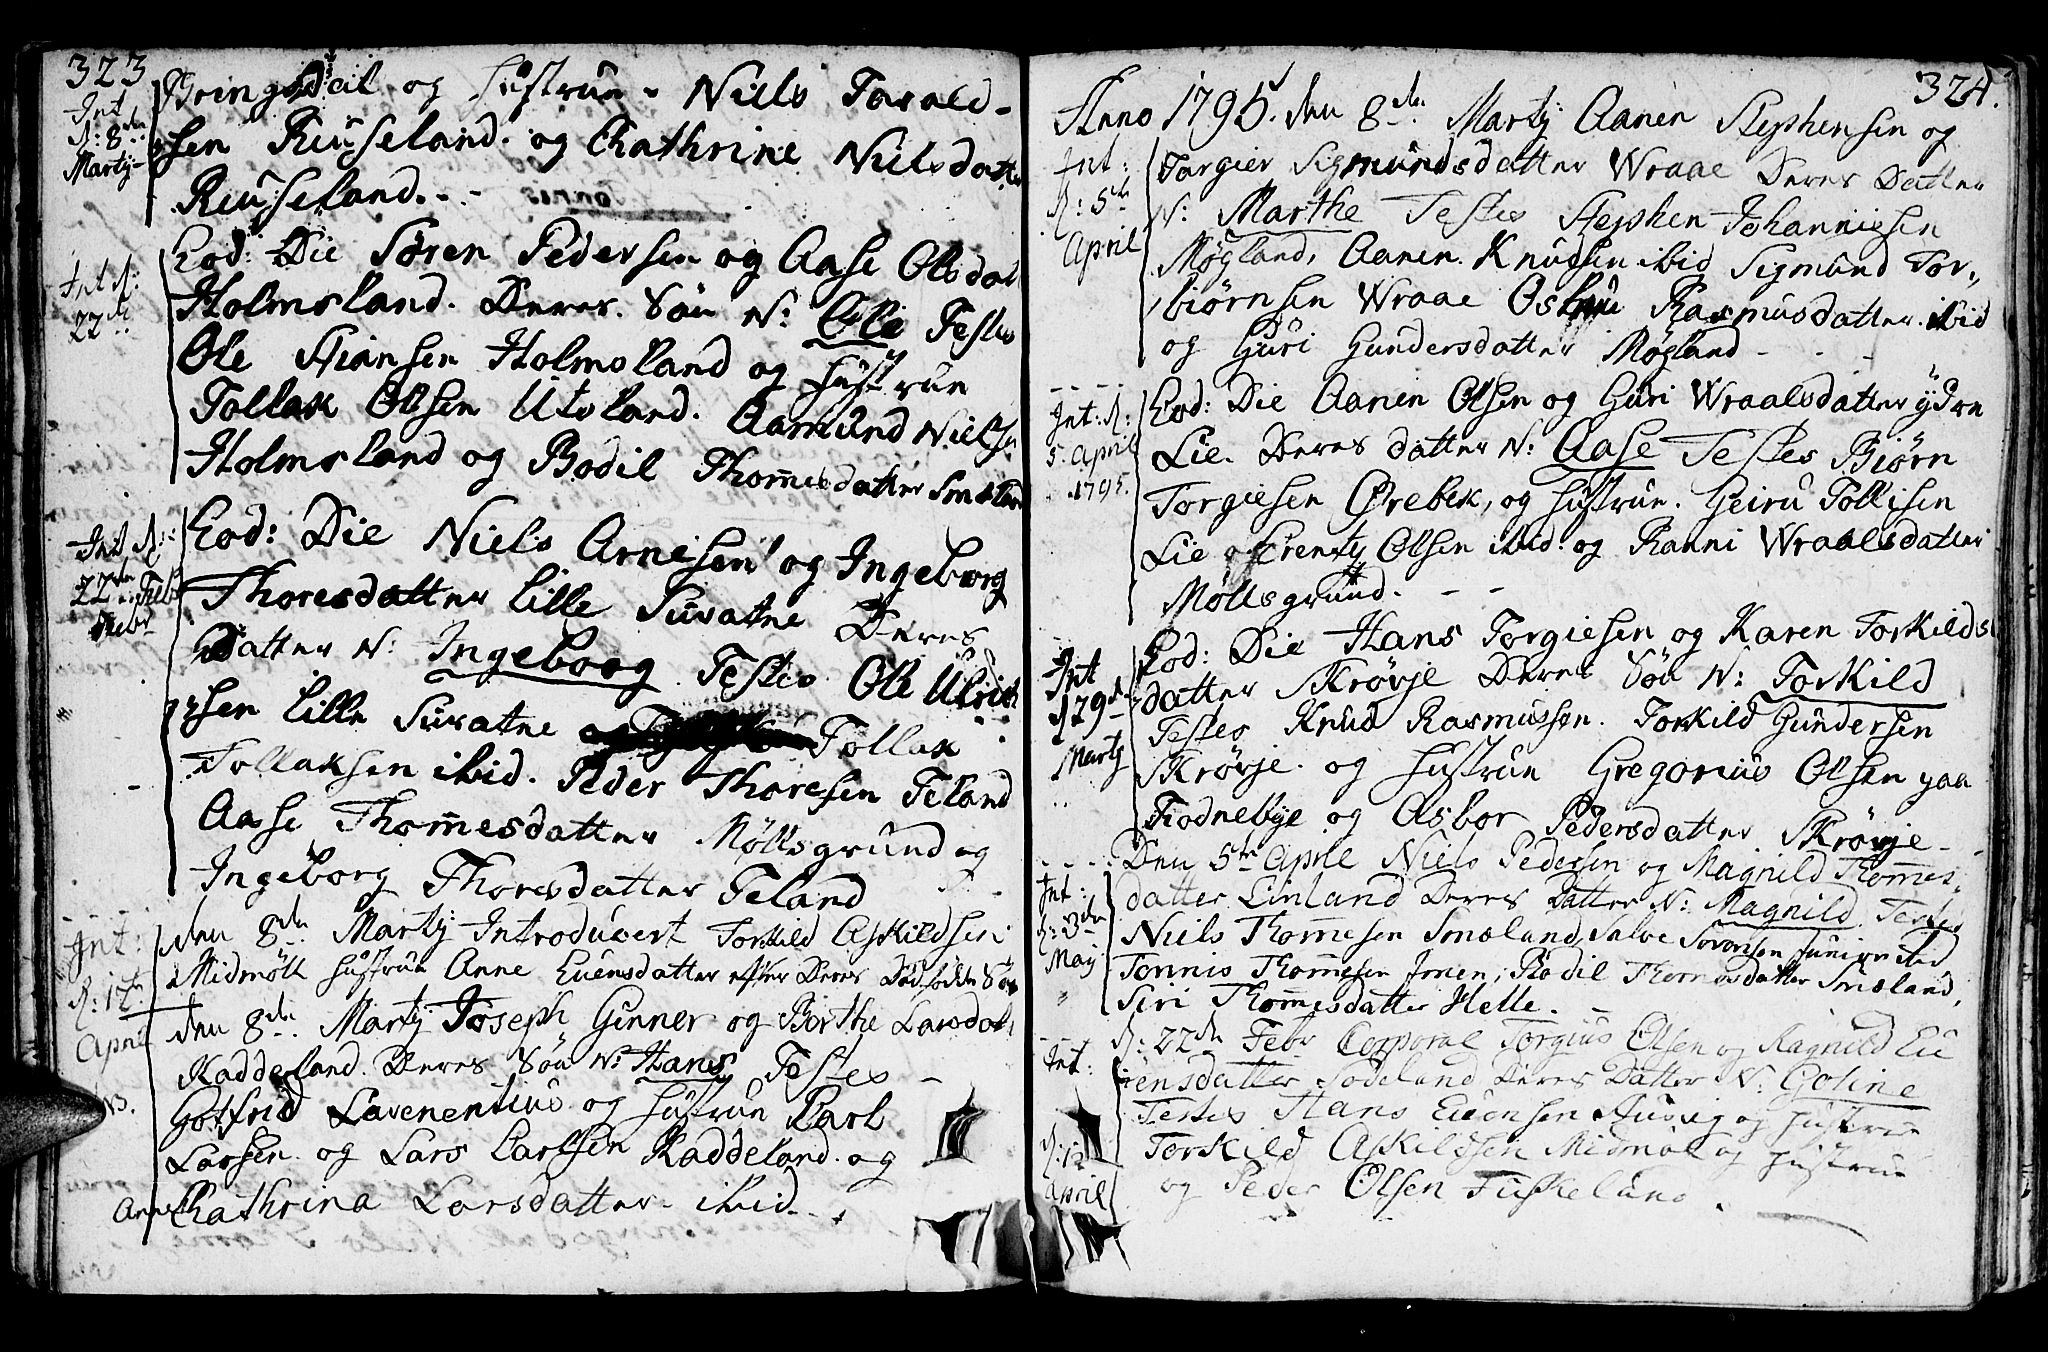 323
Int
d: 8de
Martij
Bringsdal og Hustrue - Niels Tarald-
sen Reuseland. og Chathrine Nielsdatter
Reuseland. - -
Int d:
22de
Eod: Die Søren Pedersen og Aase Olsdat
Holmsland. Deres Søn N: Ole Testes
Ole Stiansen Holmsland og Hustrue
Tollak Olsen Utsland. Aamund Niels
Holmsland og Bodil Thom̄esdatter Smæland
Int d:
22de Febr
Febr
Eod: Die Niels Arnesen og Ingeborg
Thoresdatter lille Suvatne Deres
Datter N: Ingeborg Testes Ole Ulrich
sen lille Suvatne Tollak
Tollaksen ibid. Peder Thoresen Feland
Aase Thom̄esdatter Møllsgrund og
Ingeborg Thoresdatter Feland
Int:
d: 12te
April
den 8de Martij Introducert Torkild Askildsen
Midmøll Hustrue Anne Evensdatter efter Deres Dødfødde Søn
den 8de Martij Joseph Ginner og Borthe Larsdat
Kaddeland. Deres Søn N: Hans Testes -
Gotfrid Lavenentius og Hustrue Karl
Larsen. og Lars Carlsen Kaddeland. og
Chathrina Larsdatter. ibid. -
Anne
324.
Anno 1795. den 8de Martij Aanen Stephensen og
Int:
d: 5te
April
Torgier Sigmundsdatter Wraae Deres Datter
N: Marthe Testes Stephen Johannisen
Møgland, Aanen Knudsen ibid Sigmund Tor,,
biørnsen Wraae Rasmusdatter ibid
og Guri Gundersdatter Møgland - - -
Int: d:
5 April
1795.
Eod: Die Aanen Olsen og Guri Wraalsdatter ydre
Lie. Deres datter N: Aase Testes Biørn
Torgiesen Ørebek, og Hustrue. Geiru Tollisen
Lie og Olsen ibid: og Ranni Wraalsdatter
Møllsgrund. - -
Int
d 29de
Martij
Eod: Die Hans Torgiesen og Karen Torkilds
datter Skrøvje Deres Søn N: Torkild
Testes Knud Rasmussøn. Torkild Gundersen
Skrøvje. og Hustrue Gregorius Olsen paa
Fiodnebye og Asbor Pedersdatter Skrøvje -
Int:
d: 3de
Maij
Den 5te April Niels Pedersen og Magnild Thom̄es,
datter Linland Deres Datter N: Magnild. Testes
Niels Thom̄esen Smæland, Salve Sørensen Junior ibid
Tønnis Thom̄esen Imen, Bodil Thom̄esdatter Smæland,
Siri Thom̄esdatter Helle.
Int:
d: 12
April
d: 22de Febr Corporal Torgius Olsen og Ragnild Eu
ensdatter Sodeland Deres Datter N: Goline
Testes Hans Euensen og Hustrue
Torkild Askildsen Midmøll og Hustrue
og Peder Olsen Fuskeland.